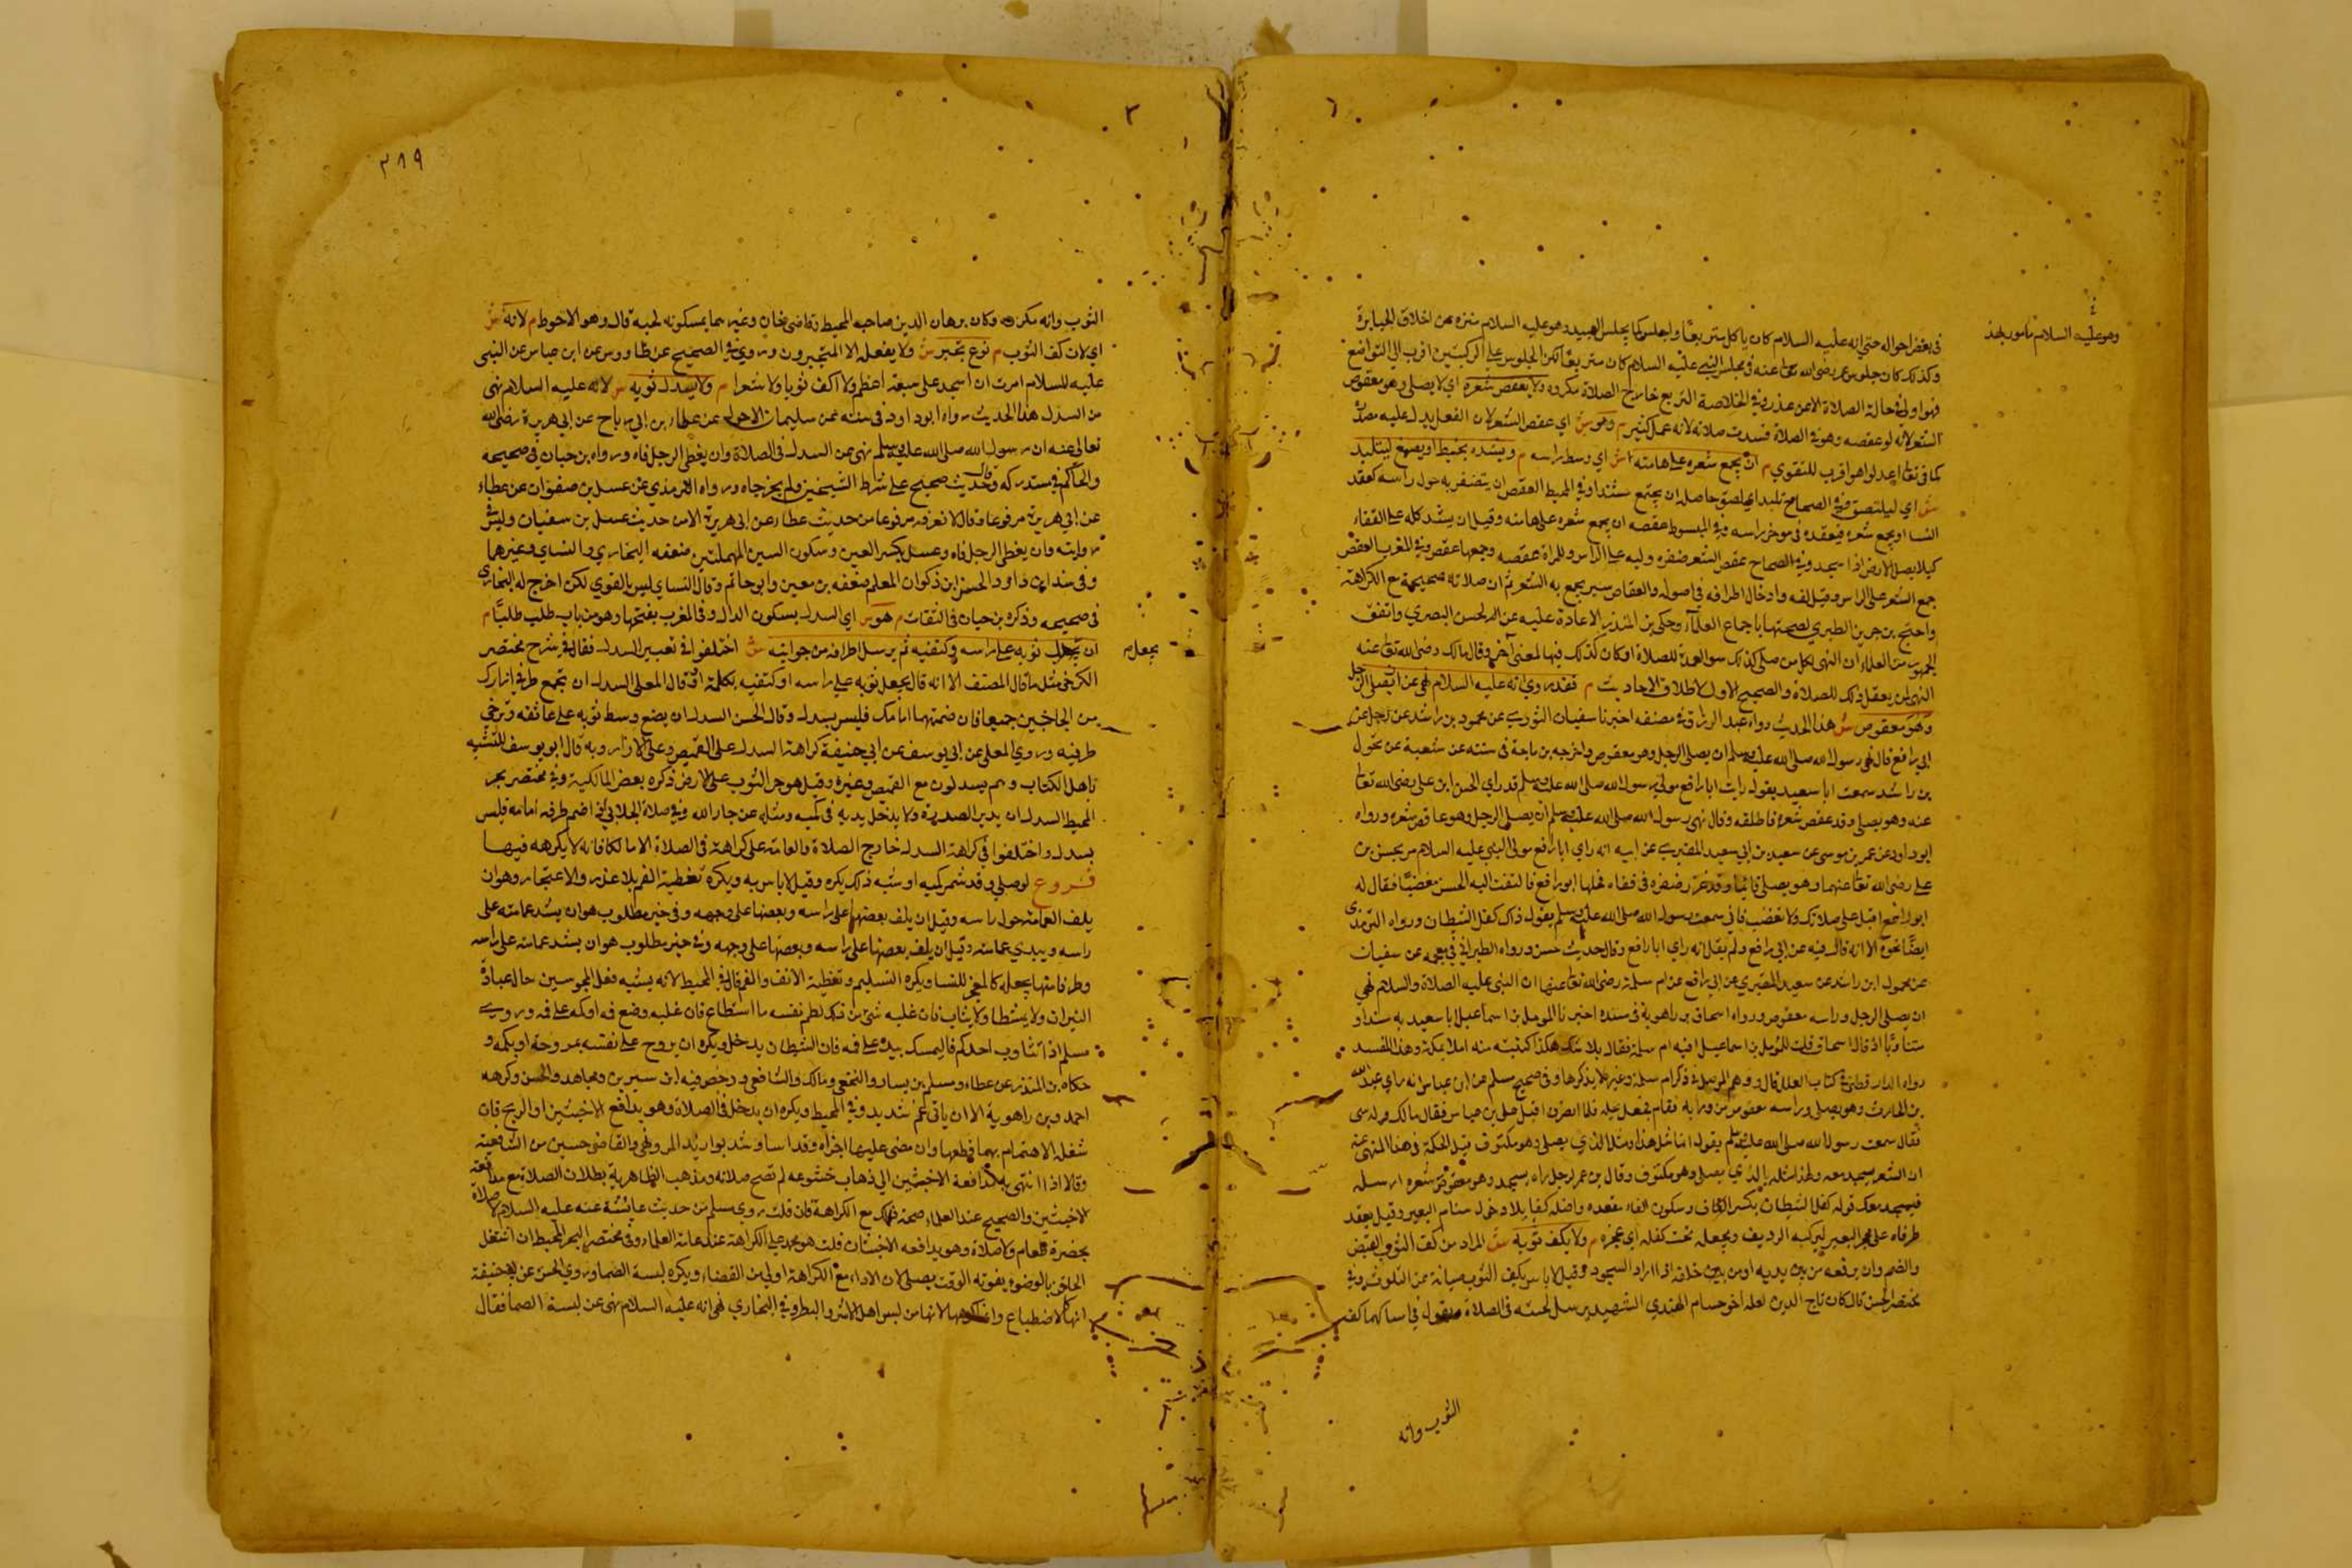 في بعض احواله حتى انه عليه السلام كان ياكل متربعا واجلس كما يجلس العبيد وهو عليه السلام منزه عن اخلاق الجبابرة
وهو عليه السلام مامور بهذ
وكذلك كان جلوس عمر رضي الله تعا عنه في مجلس النبي عليه السلام كان متربعا لكن الجلوس على الركبتين اقرب الى التواضع
فهو اولى في حالة الصلاة الا من عذر وفي الخلاصة التربع خارج الصلاة مكروه ولا يعقص شعره اي لا يصلي وهو معقوص
الشعر لانه لو عقصه وهو في الصلاة فسدت صلاته لانه عمل كثير م وهو ش اي عقص الشعر لان الفعل يدل عليه مصدره
كما في تعا اعدلوا هو اقرب للتقوي م ان يجمع شعره على هامته ش اي وسط راسه م ويشده بخيط او بصمغ ليتلبد
ش اي ليلتصق وفي الصحاح تلبد اي لصق حاصله ان يجتمع مشتدا وفي المحيط العقص ان يتضفر به حول راسه كعقد
النسا او يجمع شعره فيعقده في موخر راسه وفي المبسوط عقصه ان يجمع شعره على هامته وقيل ان يشد كله على القفاء
كيلا يصل الارض اذا سجد وفي الصحاح عقص الشعر ضفره وليه على الراس وللمراة عقصه وجمعها عقص وفي المغرب العقص
جمع الشعر على الراس وقيل لفه وادخال اطرافه في اصوله والعقاص سير يجمع به الشعر ثم ان صلاته صحيحة مع الكراهة
واحتج بن جرير الطبري لصحتها باجماع العلماء وحكى بن المنذر الاعادة عليه عن الحسن البصري واتفق
الجمهور من العلماء ان النهي لكل من صلى كذلك سوا تعمده للصلاة او كان كذلك قبلها لمعنى آخر وقال مالك رضى الله تعا عنه
النهي لمن يفعل ذلك للصلاة والصحيح الاول لاطلاق الاحاديث م فقد روي انه عليه السلام نهي عن ان يصلي الرجل
وهو معقوص ش هذا الحديث رواه عبد الرزاق في مصنفه اخبرنا سفيان الثوري عن مخول بن راشد عن رجل عن
ابي رافع قال نهي رسول الله صلى الله عليه وسلم ان يصلي الرجل وهو معقوص واخرجه بن ماجة في سننه عن شعبة عن مخول
بن راشد سمعت ابا سعيد يقول رايت ابا رافع مولى رسول الله صلى الله عليه وسلم قد راي الحسن ابن على رضى الله تعا
عنه وهو يصلي وقد عقص شعره فاطلقه وقال نهى رسول الله صلى الله عليه وسلم ان يصلي الرجل وهو عاقص شعره ورواه
ابو داود عن عمر بن موسى عن سعيد بن ابي سعيد المقبري عن ابيه انه راي ابا رافع مولى النبي عليه السلام مر بحسن بن
على رضى الله تعا عنهما وهو يصلي قائما وقد غرز ضفره في قفاه فحلها ابو رافع فالتفت اليه الحسن مغضبا فقال له
ابو رافع اقبل على صلاتك ولا تغضب فاني سمعت رسول الله صلى الله عليه وسلم يقول ذاك كفل الشيطان ورواه الترمذى
ايضا نحوه الا انه قال فيه عن ابي رافع ولم يقل انه راي ابا رافع وقال حديث حسن ورواه الطبراني في معجمه عن سفيان
عن مخول ابن راشد عن سعيد المقبري عن ابي رافع عن ام سلمة رضى الله تعا عنها ان النبى عليه الصلاة والسلام نهي
ان يصلي الرجل وراسه معقوص ورواه اسحاق بن راهوية في مسنده اخبرنا المومل بن اسماعيل ابا سعيد به سندا و
متنا وزاد قال اسحاق قلت للمومل بن اسماعيل افيه ام سلمة فقال بلا شك هكذا كتبته منه املا بمكة وهذا المسند
رواه الدار قطني في كتاب العلل قال ووهم المومل في ذكر ام سلمة وغيره لا يذكرها وفي صحيح مسلم عن ابن عباس انه راي عبد الله
بن الحارث وهو يصلي وراسه معقوص من ورايه فقام فجعل يحله فلما انصرف اقبل على بن عباس فقال مالك وراسى
فقال سمعت رسول الله صلى الله عليه وسلم يقول انما مثل هذا مثل الذي يصلي وهو مكتوف قيل الحكمة في هذا النهي عنه
ان الشعر يسجد معه ولهذا مثله بالذي يصلي وهو مكتوف وقال بن عمر لرجل راه يسجد وهو معقوص شعره ارسله
فيسجد معك قوله كفل الشيطان بكسر الكاف وسكون الفاء مقعده واصله كفا يدار حول سنام البعير وقيل يعقد
طرفاه على عجز البعير ليركبه الرديف ويجعله تحت كفله اي عجزه م ولا يكف ثوبه ش المراد من كف الثوب القبض
والضم وان يرفعه من بين يديه او من بين خلفه اذا اراد السجود وقيل لا باس بكف الثوب صيانة عن التلوث وفي
مختصر الحسن قال كان تاج الدين لعله اخو حسام الهندي الشهيد يرسل لحيته في الصلاة ويقول في امساكهما كف
الثوب وانه
٢٨٩
الثوب وانه مكروه وكان برهان الدين صاحب المحيط وقاضى خان وغيرهما يمسكونه لحيه قال وهو الاحوط م لانه ش
اي لان كف الثوب م نوع تجبر ش ولا يفعله الا المتجبرون وروي في الصحيح عن طاووس عن ابن عباس عن النبى
عليه السلام امرت ان اسجد على سبعة اعظم ولا اكف ثوبا ولا شعرا م ولا يسدل ثوبه ش لانه عليه السلام نهى
من السدل هذا الحديث رواه ابو داود في سننه عن سليمان الاحول عن عطاء بن ابي رباح عن ابي هريرة رضى الله
تعالى عنه ان رسول الله صلى الله عليه وسلم نهى عن السدل في الصلاة وان يغطي الرجل فاه ورواه بن حبان في صحيحه
والحاكم في مستدركه وقال حديث صحيح على شرط الشيخين ولم يخرجاه ورواه الترمذي عن عسل بن صفوان عن عطاء
عن ابي هريرة مرفوعا وقال لا نعرفه مرفوعا من حديث عطاء عن ابي هريرة الا من حديث عسل بن سفيان وليس في
روايته وان يغطى الرجل فاه وعسل بكسر العين وسكون السين المهملتين ضعفه البخاري والنساي وغيرهما
وفي سند ابى داود الحسن ابن ذكوان المعلم ضعفه بن معين وابو حاتم وقال النساي ليس بالقوي لكن اخرج له البخارى
في صحيحه وذكره بن حبان في الثقات م هو ش اي السدل بسكون الدال وفي المغرب بفتحها وهو من باب طلب طلبا م
ان يجعل ثوبه على راسه وكتفيه ثم يرسل اطرافه من جوانبه ش اختلفوا في تفسير السدل فقال في شرح مختصر
يجعل م
الكرخي مثل ما قال المصنف الا انه قال يجعل ثوبه على راسه او كتفيه بكلمة او وقال المعلى السدل ان تجمع طرفي ازارك
من الجانبين جميعا فان ضممتهما امامك فليس بسدل وقال الحسن السدل ان يضع وسط ثوبه على عاتقه وترخي
طرفيه وروي المعلى عن ابي يوسف عن ابي حنيفة كراهة السدل على القميص وعلى الازار وبه قال ابو يوسف للتشبه
باهل الكتاب وهم يسدلون مع القميص وغيره وقيل هو جر الثوب على الارض ذكره بعض المالكية وفي مختصر بحر
المحيط السدل ان يدير الصدرة ولا يدخل يديه في كميه ومثله عن جار الله وفي صلاة الجلابي اذا ضم طرفه امامه فليس
بسدل واختلفوا في كراهة السدل خارج الصلاة والعامة على كراهته في الصلاة الا مالكا فانه لا يكرهه فيها
فروع لو صلى وقد شمر كميه او شبه ذلك يكره وقيل لا باس به ويكره تغطية الفم بلا عذر والاعتجار وهو ان
يلف العمامة حول راسه وقيل ان يلف بعضها على راسه وبعضها على وجهه وفي خير مطلوب هو ان يشد عمامته على
راسه ويبدي هامته وقيل ان يلف بعضها على راسه وبعضها على وجهه وفي خير مطلوب هو ان يشد عمامته على راسه
وطرفا منها يجعله كالمعجر للنسا ويكره التلثيم وتغطية الانف والفم قال في المحيط لانه يشبه فعل المجوسين حال عبادة
النيران ولا يتمطا ولا يتثاب فان غلبه شئ من ذلك كظم نفسه ما استطاع فان غلبه وضع فه او كمه على فه وروي
مسلم اذا تثاوب احدكم فاليمسك بيده على فه فان الشيطان يدخل ويكره ان يروح على نفسه بمروحة او بكمه و
حكاه بن المنذر عن عطاء ومسلم بن يسار والنخعى ومالك والشافعي ورخص فيه ابن سيرين ومجاهد والحسن وكرهه
احمد وبن راهوية الا ان ياتي غم شديد وفي المحيط ويكره ان يدخل في الصلاة وهو يدافع الاخبثين او الريح فان
شغله الاهتمام بهما قطعها وان مضى عليها اجزاه وقد اسا وشذ ابو زيد المروزي والقاضى حسين من الشافعية
وقالا اذا انتهى به مدافعة الاخبثين الى ذهاب خشوعه لم تصح صلاته ومذهب الظاهرية بطلان الصلاة مع مدافعة
الاخبثين والصحيح عند العلماء صحة ذلك مع الكراهة فان قلت روي مسلم من حديث عائشة عنه عليه السلام لا صلاة
بحضرة طعام ولا صلاة وهو يدافعه الاخبثان قلت هو محمول على الكراهة عند عامة العلماء وفي مختصر البحر المحيط ان اشتغل
الحاقن بالوضوء يفوته الوقت يصلي لان الاداء مع الكراهة اولى من القضاء ويكره لبسة الصما وروي الحسن عن ابي حنيفة
انها كالاضطباع وانما كرهها لانها من لبس اهل الاشر والبطر وفي البخاري نهي انه عليه السلام نهى عن لبسة الصما فقال